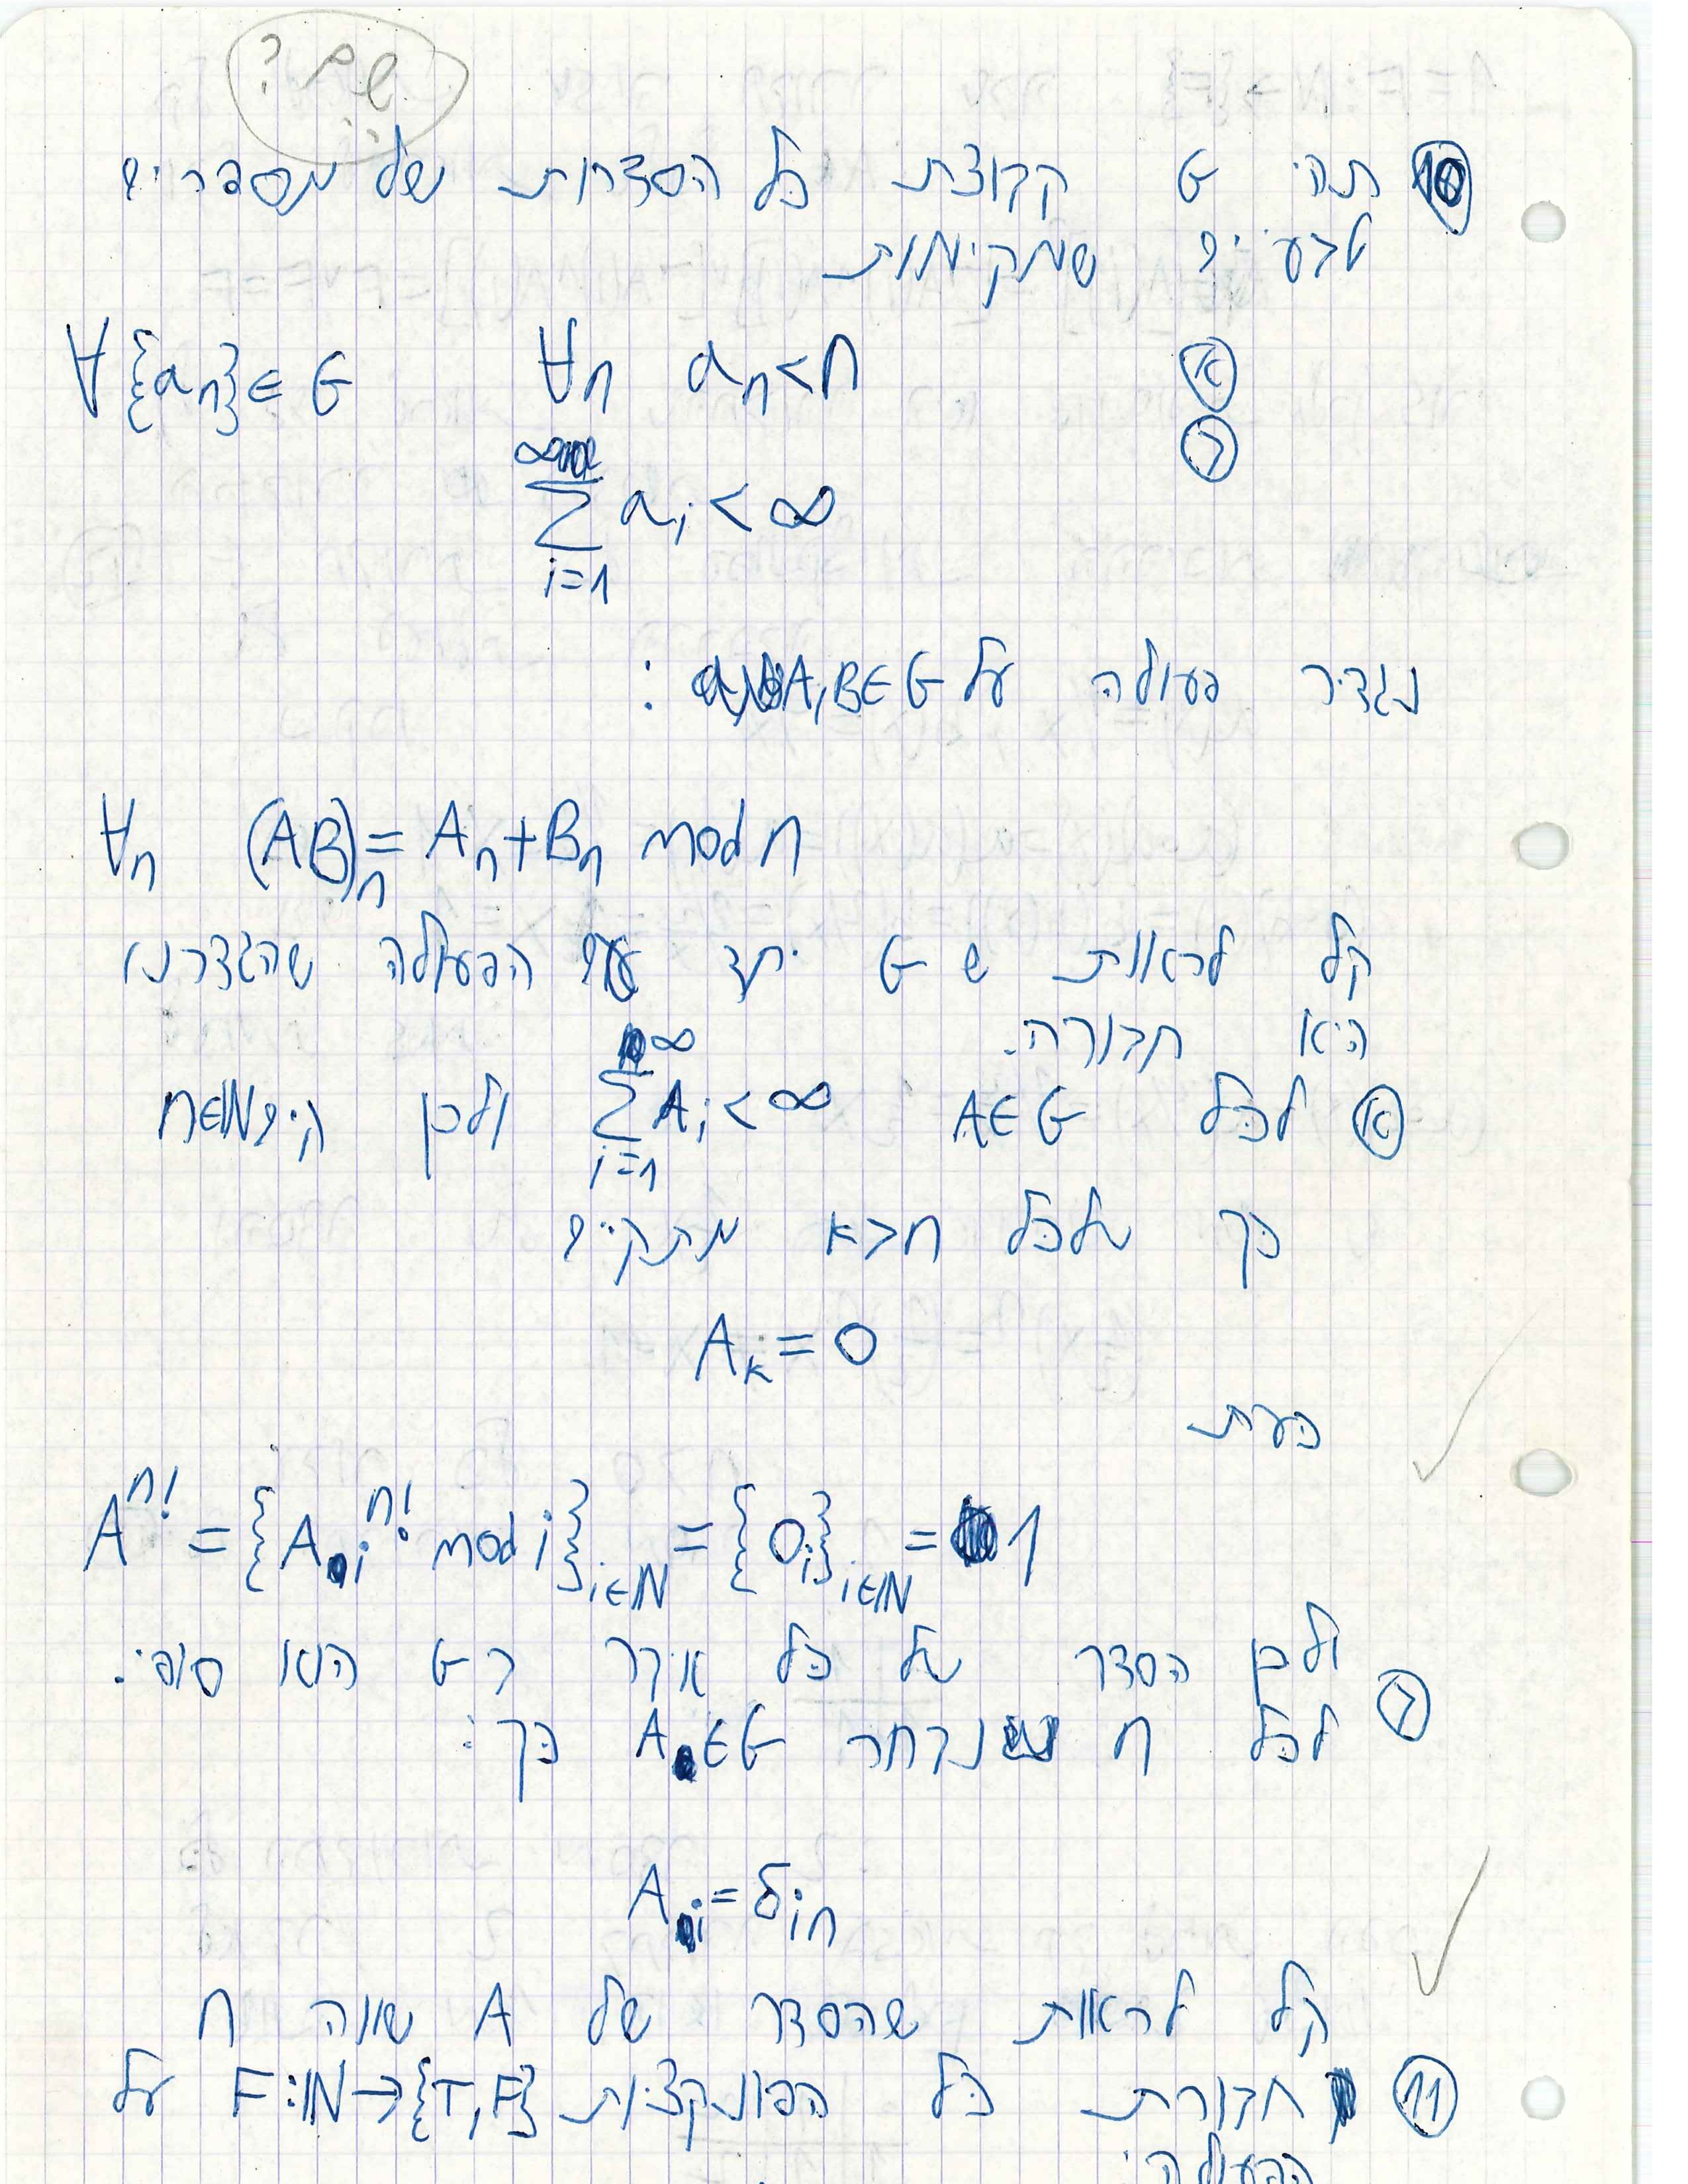 שם?
⑩ תהי G קבוצת כל הסדרות של מספרים
טבעיים שמקיימות
א ∀n aₙ<n ∀{aₙ}∈G
ב
∞
∑ aᵢ < ∞
i=1
נגדיר פעולה על A,B∈G :
∀n (AB)ₙ = Aₙ+Bₙ mod n
קל לראות ש G יחד עם הפעולה שהגדרנו
היא חבורה.
א לכל A∈G ∑_{i=1}^{∞} Aᵢ<∞ ולכן קיים n∈ℕ
כך שלכל n<k מתקיים
Aₖ=0
כעת
A^{n!} = {Aᵢ^{n!} mod i}_{i∈ℕ} = {0ᵢ}_{i∈ℕ} = 1
ולכן הסדר של כל איבר ב G הוא סופי.
ב לכל n נבחר A∈G כך:
Aᵢ=δᵢₙ
קל לראות שהסדר של A שווה n
⑪ חבורת כל הפונקציות F:ℕ→{T,F} על
הפעולה: